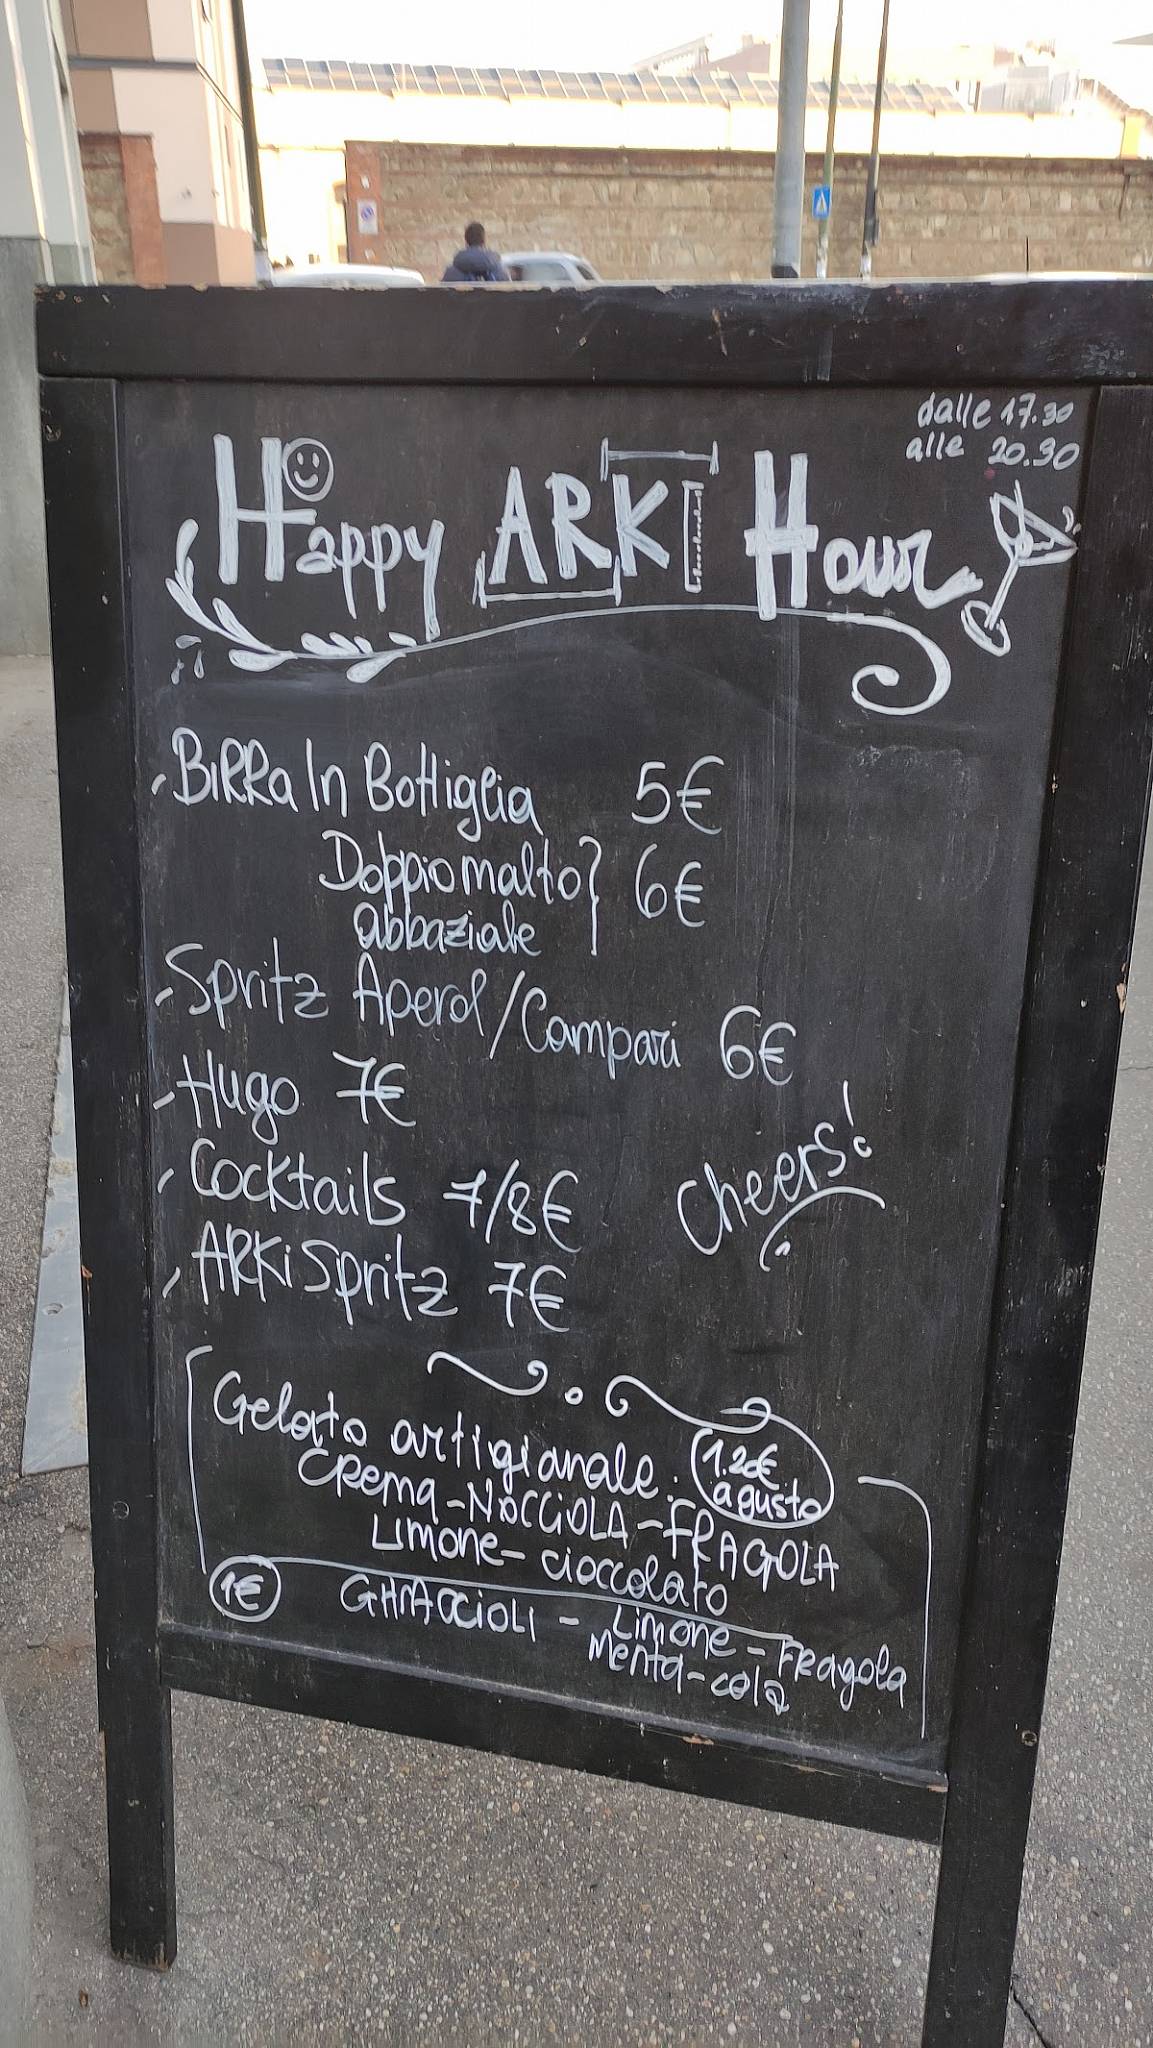 dalle 17.30
alle 20.30
Happy ARKI Hour
- BIRRa In Bottiglia 5€
Doppio malto } 6€
abbaziale
- Spritz Aperol/Campari 6€
- Hugo 7€
- Cocktails 7/8€
cheers!
- ARKi Spritz 7€
Gelato artigianale. 1.20€ a gusto
CREMA - NOCCIOLA - FRAGOLA
LIMONE - cioccolato
1€ GHIACCIOLI - LIMONE - FRAgola
Menta - cola